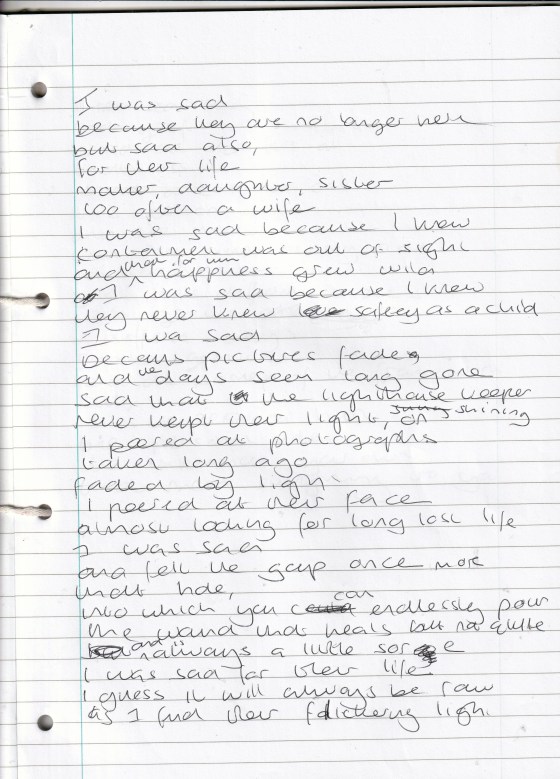 I was sad
because they are no longer here
but sad also,
for their life
mother, daughter, sister
too often a wife
I was sad because I knew
contentment was out of sight
and happiness grew wild
I was sad because I knew
they never knew safety as a child
I wa sad
becaus pictures fade
and the days seem long gone
sad that the lighthouse keeper
never kept their light, on shining
I peered at photographs
taken long ago
faded by light
I peered at their face
almost looking for long lost life
I was sad
and felt the gap once more
that hole,
into which you can endlessly pour
the wound that heals but not quite
and is always a little sore
I was sad for their life
I guess it will always be raw
as I find their flickering light